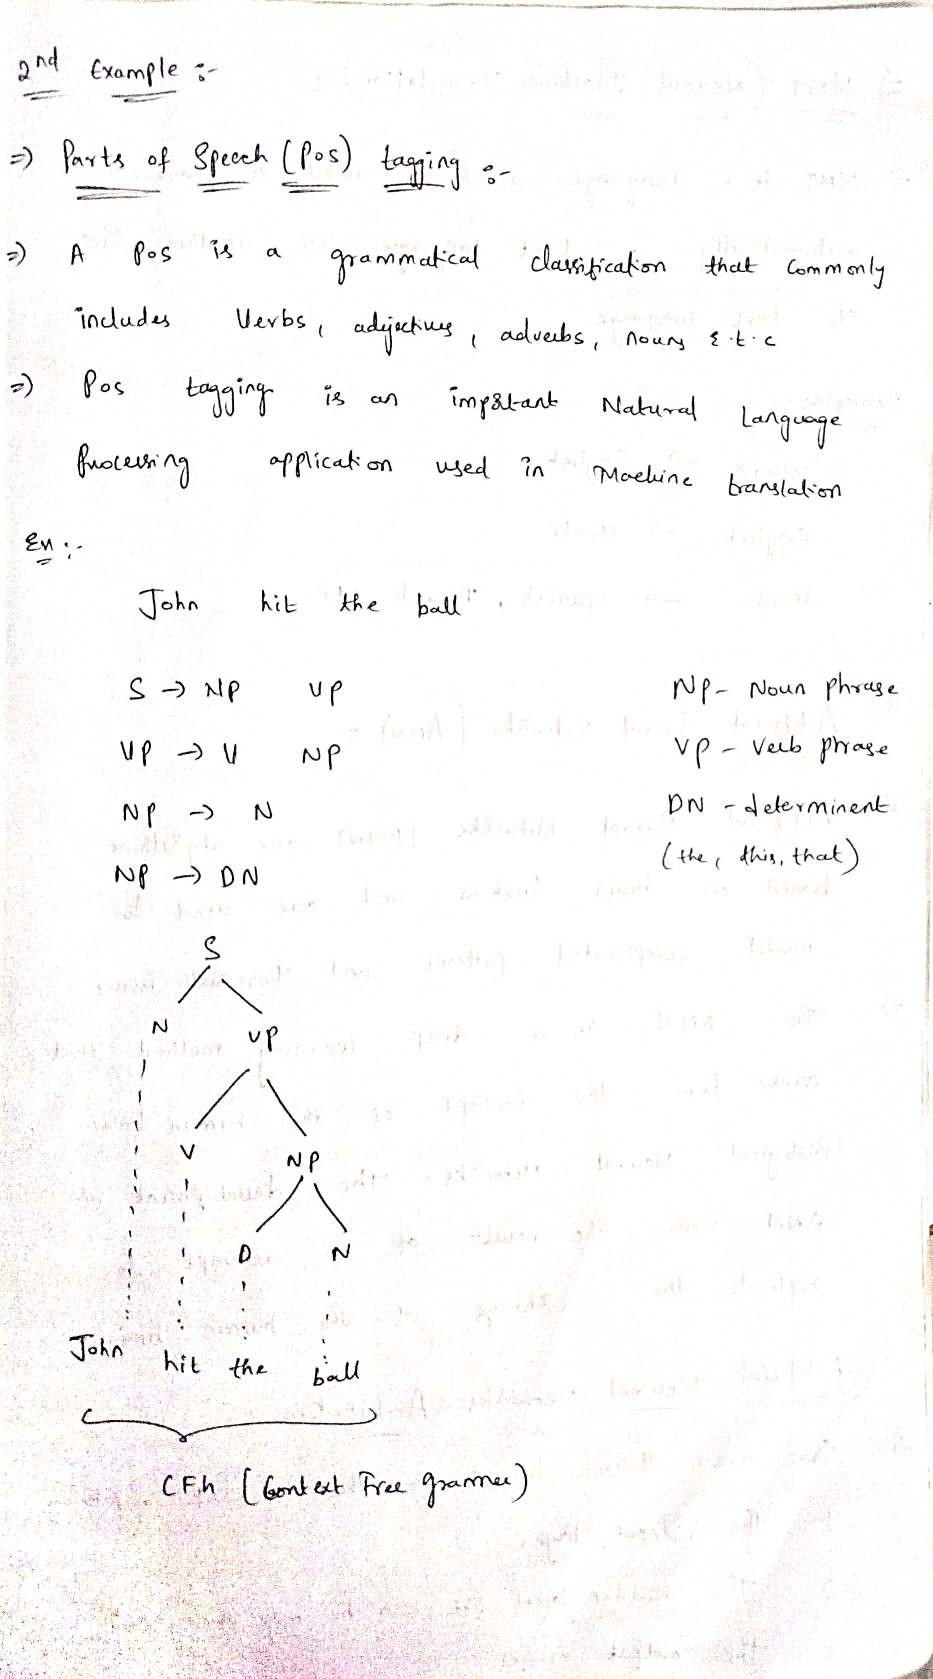 2nd Example :-
=> Parts of Speech (Pos) tagging :-
=> A Pos is a grammatical classification that commonly
includes Verbs, adjectives, adverbs, nouns E.t.c
=> Pos tagging is an important Natural Language
Processing application used in Machine translation
Ex :-
John hit the ball
S → NP VP NP - Noun phrase
VP → V NP VP - Verb phrase
NP → N DN - determinent
(the, this, that)
NP → DN
S
N VP
V NP
D N
John hit the ball
CFG (Context Free grammer)